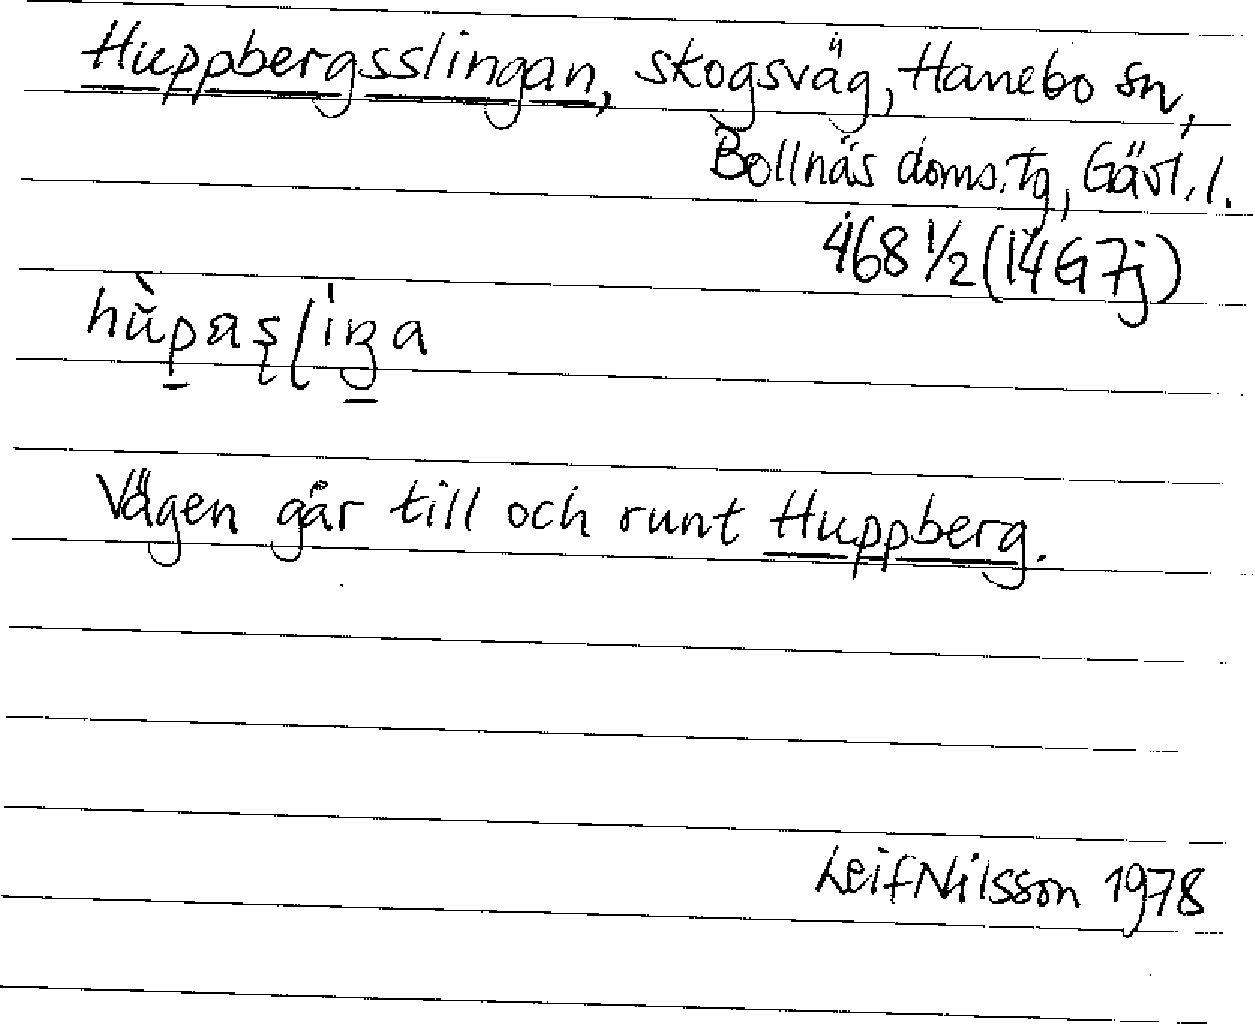 Huppbergsslingan, skogsväg, Hanebo sn,
Bollnäs doms.tg, Gävl.l.
468 1/2 (14G 7j)
Vägen går till och runt Huppberg.
Leif Nilsson 1978